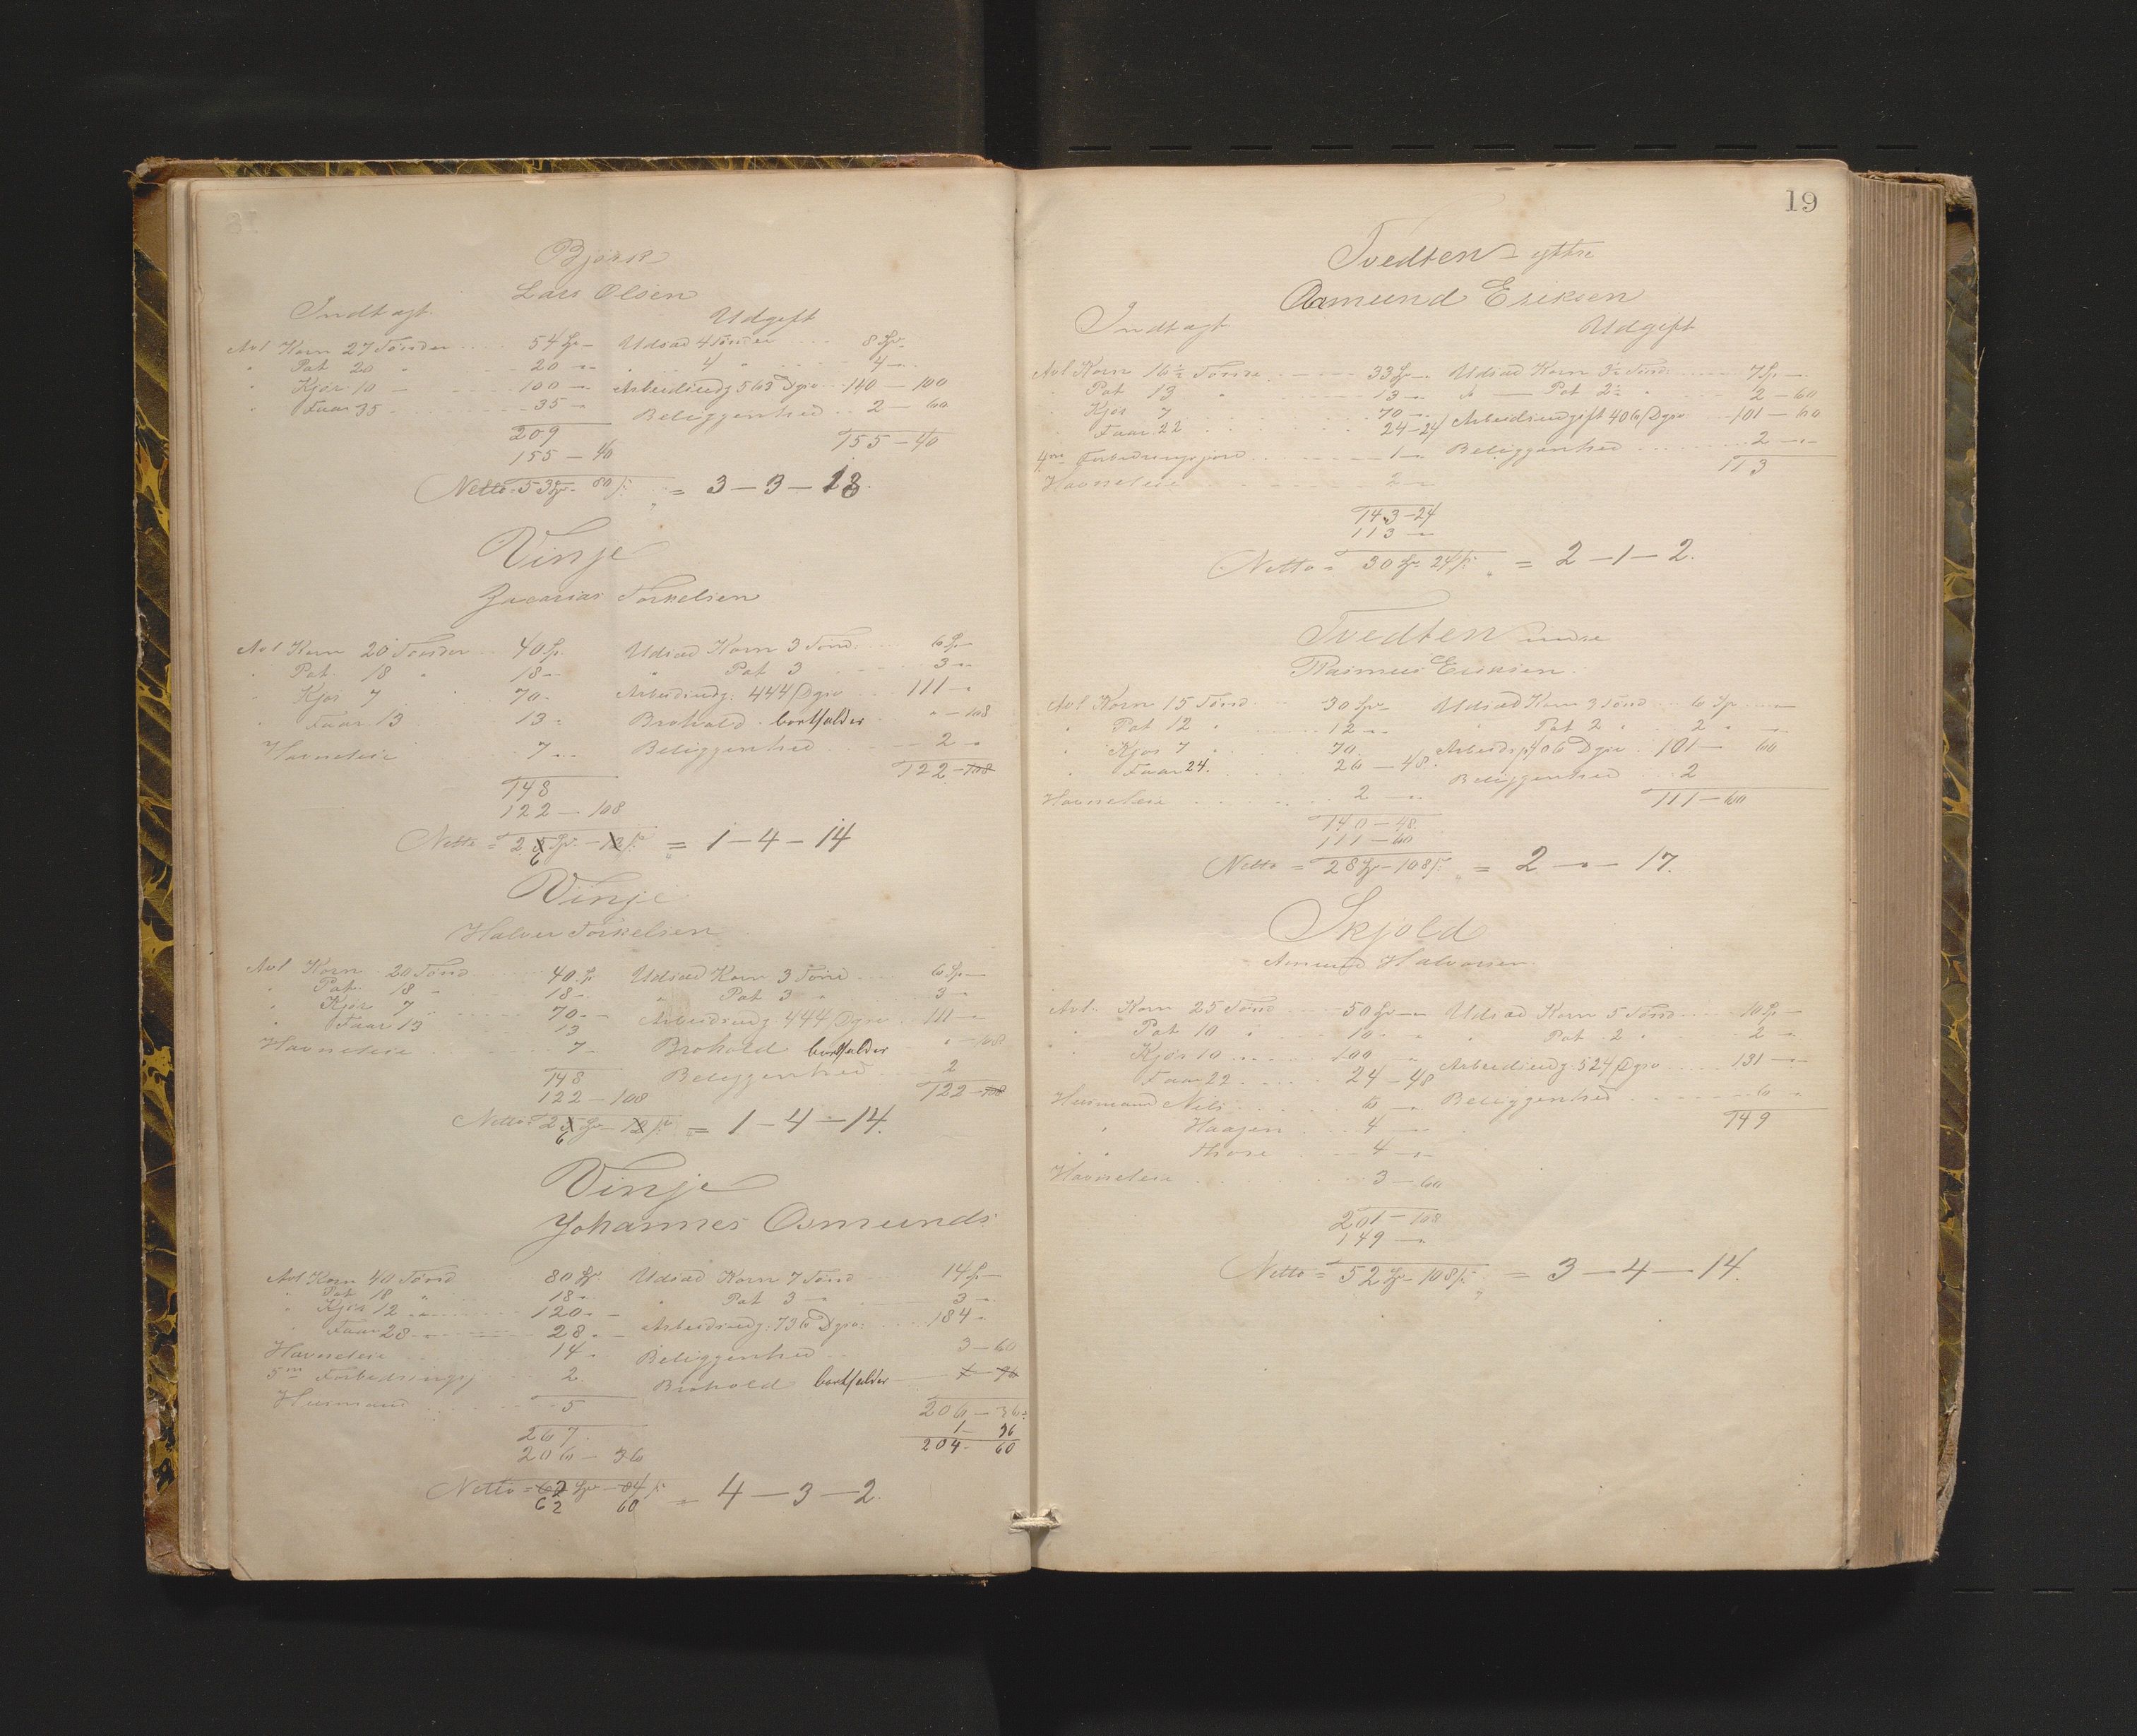 Bjørk
Lars Olsen
Indtægt. Udgift
Avl Korn 27 Tønder 54 Sp – Udsæd 4 Tønder 8 Sp –
" Pot 20 " 20 – " " 4 " 4 – "
" Kjør 10 – 100 – " Arbeidsudg 563 Dgsv 140 – 100
" Faar 35 35 – " Beliggenhed 2 – 60
209 155 – 40
155 – 40
Netto = 53 Sp – 80 s = 3 – 3 – 13.
Vinje
Zacarias Torkelsen
Avl Korn 20 Tønder 40 Sp. Udsæd Korn 3 Tønd. 6 Sp –
" Pot. 18 " 18 – " Pot 3 3 – "
" Kjør 7 70 – Arbeidsudg: 444 Dgsv 111 – "
" Faar 13 13 – Brohold bortfalder " – 108
Havneleie 7 – " Beliggenhed 2 – "
148 122 – 108
122 – 108
Netto = 25 Sp. – 12 s = 1 – 4 – 14
6
Vinje
Halvor Torkelsen
Avl Korn 20 Tønd 40 Sp Udsæd Korn 3 Tønd 6 Sp –
" Pot. 18 " 18 – " Pot 3 " 3 – "
" Kjør 7 " 70 – " Arbeidsudg 444 Dgsv 111 – "
" Faar 13 13 Brohold bortfalder " – 108
Havneleie 7 – Beliggenhed 2
148 122 – 108
122 – 108
Netto = 25 Sp – 12 s = 1 – 4 – 14.
6
Vinje
Johannes Osmunds
Avl Korn 40 Tønd 80 Sp. Udsæd Korn 7 Tønd 14 Sp –
" Pot 18 " 18 – " Pot 3 – " 3 – "
" Kjør 12 " 120 – " Arbeidsudg: 736 Dgsv: 184 – "
" Faar 28 – " 28 – " Beliggenhed 3 – 60
Havneleie 14 – Brohold bortfalder
5 m Forbedringsj 2
Husmand 5 206 – 36
267. 1 – 36
206 – 36 204 – 60
Netto = 62 Sp – 84 s = 4 – 3 – 2.
62 60
19
Tvedten – yttre
Osmund Eriksen
Indtægt. Udgift
Avl Korn 16 1/2 Tønder 33 Sp – Udsæd Korn 3 1/2 Tønd 7 Sp –
" Pot 13 " 13 – " " — Pot 2 1/2 " 2 – 60
" Kjør 7 70 – " Arbeidsudgift 406 Dgsv 101 – 60
" Faar 22 24 – 24 Beliggenhed 2 – "
4 m Forbedringsjord 1 – " 113
Havneleie 2 – "
143 – 24
113 – "
Netto = 30 Sp 24 s = 2 – 1 – 2.
Tvedten indre
Rasmus Eriksen.
Avl Korn 15 Tønd 30 Sp – Udsæd Korn 3 Tønd 6 Sp –
" Pot 12 " 12 – " " Pot 2 " 2 " – "
" Kjør 7 " 70. Arbeidsg 406 Dgsv 101 – 60
" Faar 24. 26 – 48. Beliggenhed 2
Havneleie 2 – " 111 – 60
140 – 48.
111 – 60
Netto = 28 Sp – 108 s = 2 – " – 17.
Skjold
Amund Halvorsen
Avl. Korn 25 Tønd 50 Sp – " Udsæd Korn 5 Tønd 10 Sp –
" Pot 10 " 10 – " " Pot 2 " 2 – "
" Kjør 10 100 – " Arbeidsudg: 524 Dgsv 131 – "
" Faar 22 24 – 48 Beliggenhed 6 "
Husmand Nils 6 – " 149
" Haagen 4 – "
" " Thore 4 – "
Havneleie 3 – 60
201 – 108
149 – "
Netto = 52 Sp – 108 s = 3 – 4 – 14.